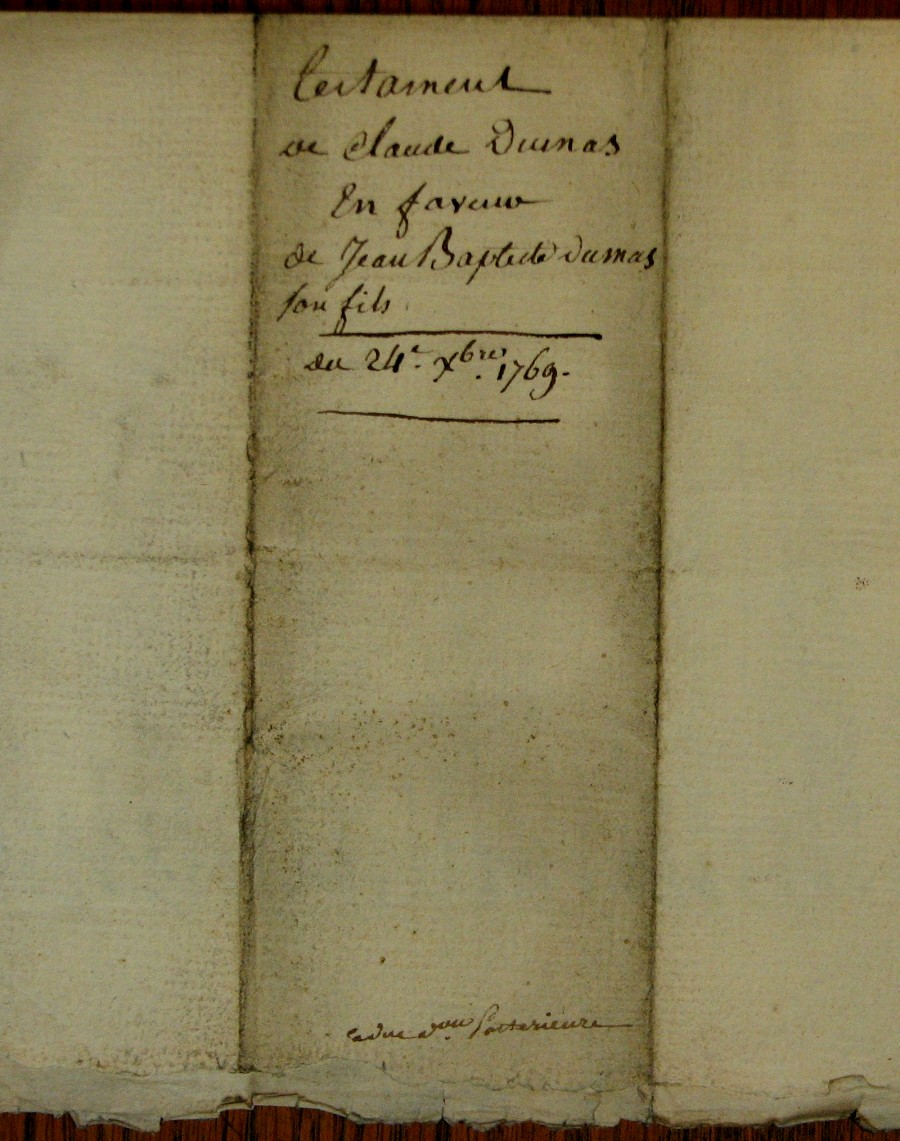 Testament
de Claude Dumas
En faveur
de Jean Baptiste Dumas
son fils
du 24.e Xbre 1769.
posterieure